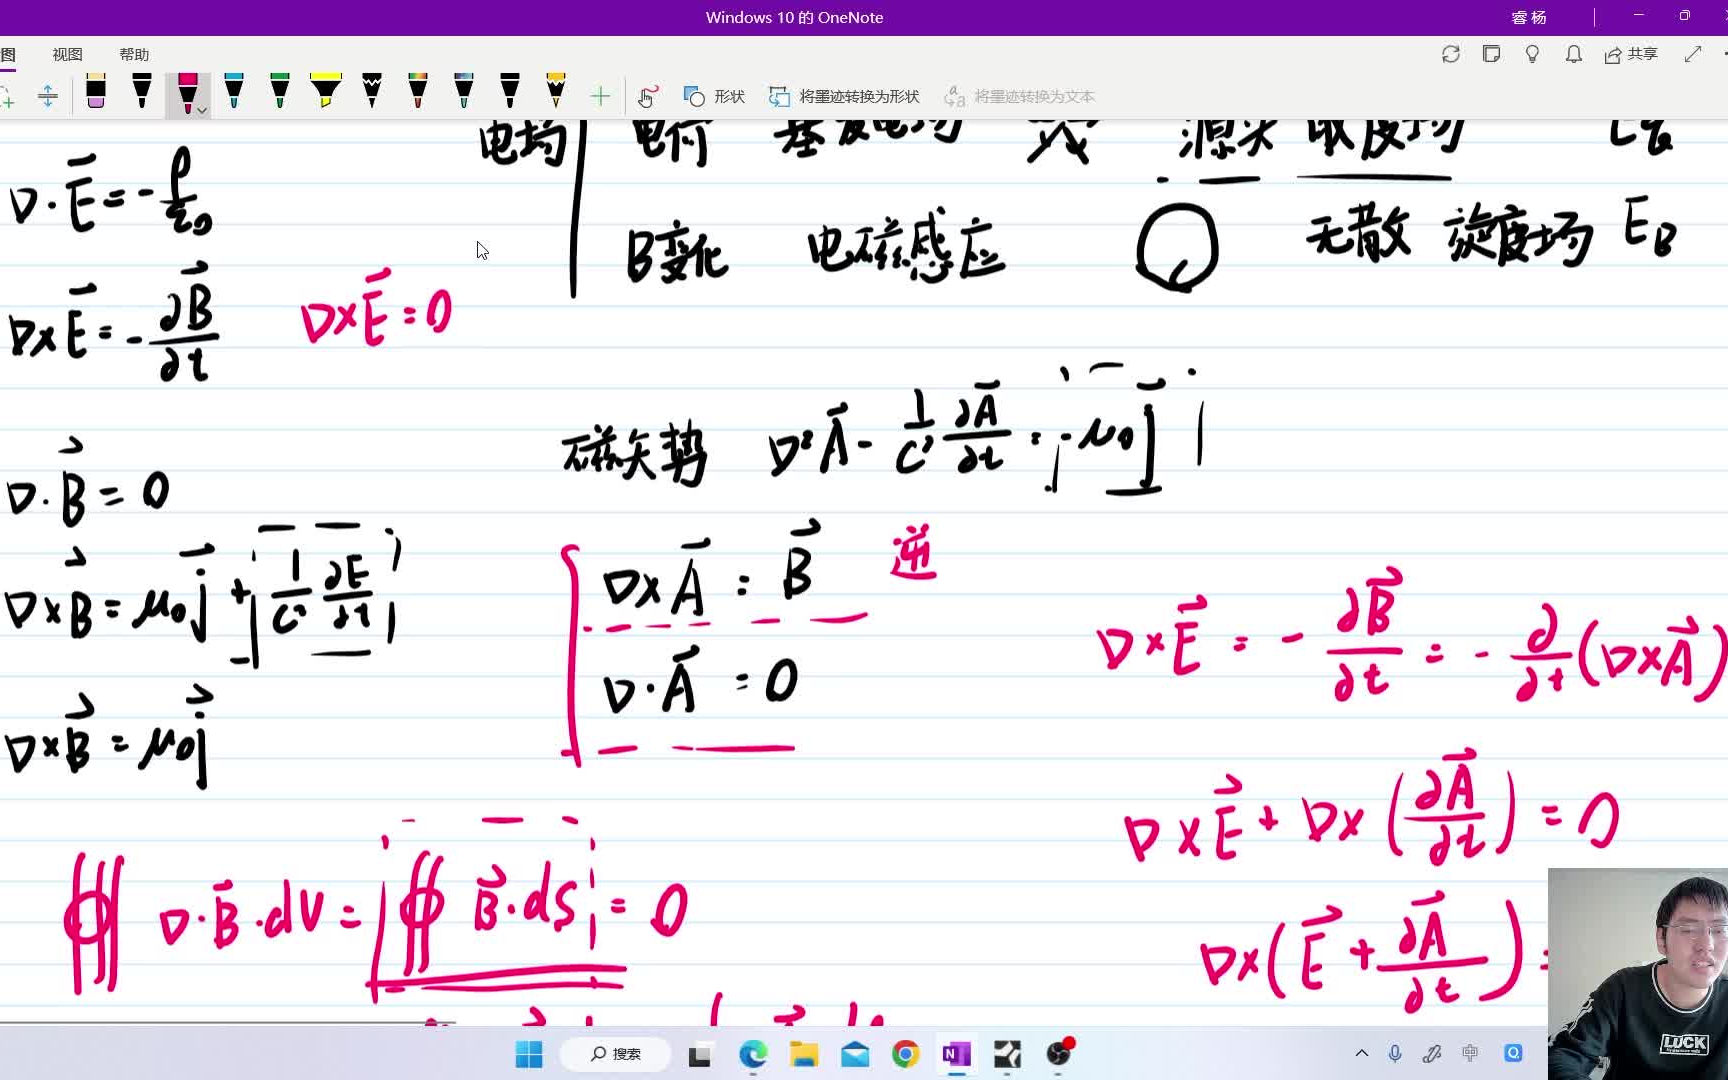 Windows 10 的 OneNote
睿 杨
图 视图 帮助
共享
形状 将墨迹转换为形状 将墨迹转换为文本
电场 电荷 基发电场 源头 散度场
B变化 电磁感应 无散 旋度场 E_B
∇·E⃗ = -ρ/ε₀
∇×E⃗ = -∂B⃗/∂t ∇×E⃗ = 0
磁矢势 ∇²A⃗ - 1/c² ∂A⃗/∂t = -μ₀j⃗
∇·B⃗ = 0
∇×B⃗ = μ₀j⃗ + 1/c² ∂E/∂t
∇×A⃗ = B⃗ 逆
∇×E⃗ = -∂B⃗/∂t = -∂/∂t(∇×A⃗)
∇·A⃗ = 0
∇×B⃗ = μ₀j⃗
∇×E⃗ + ∇×(∂A⃗/∂t) = 0
∯ ∇·B⃗·dV = ∯ B⃗·dS = 0
∇×(E⃗ + ∂A⃗/∂t) =
LUCK
搜索
中